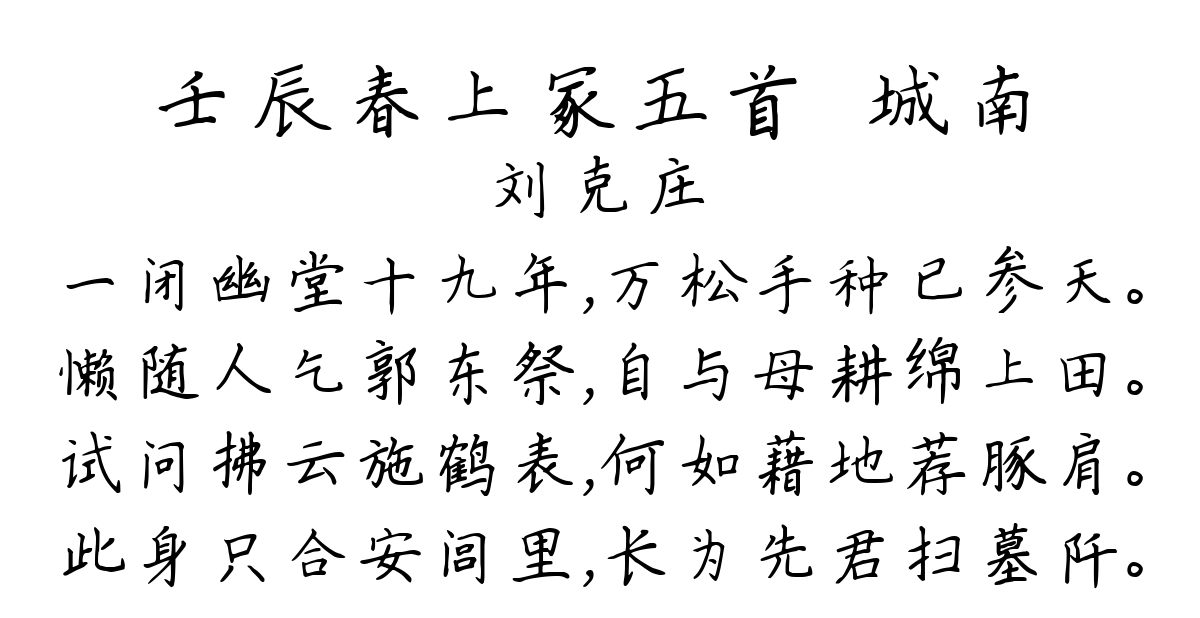 壬辰春上冢五首 城南
刘克庄
一闭幽堂十九年,万松手种已参天。
懒随人乞郭东祭,自与母耕绵上田。
试问拂云施鹤表,何如藉地荐豚肩。
此身只合安闾里,长为先君扫墓阡。